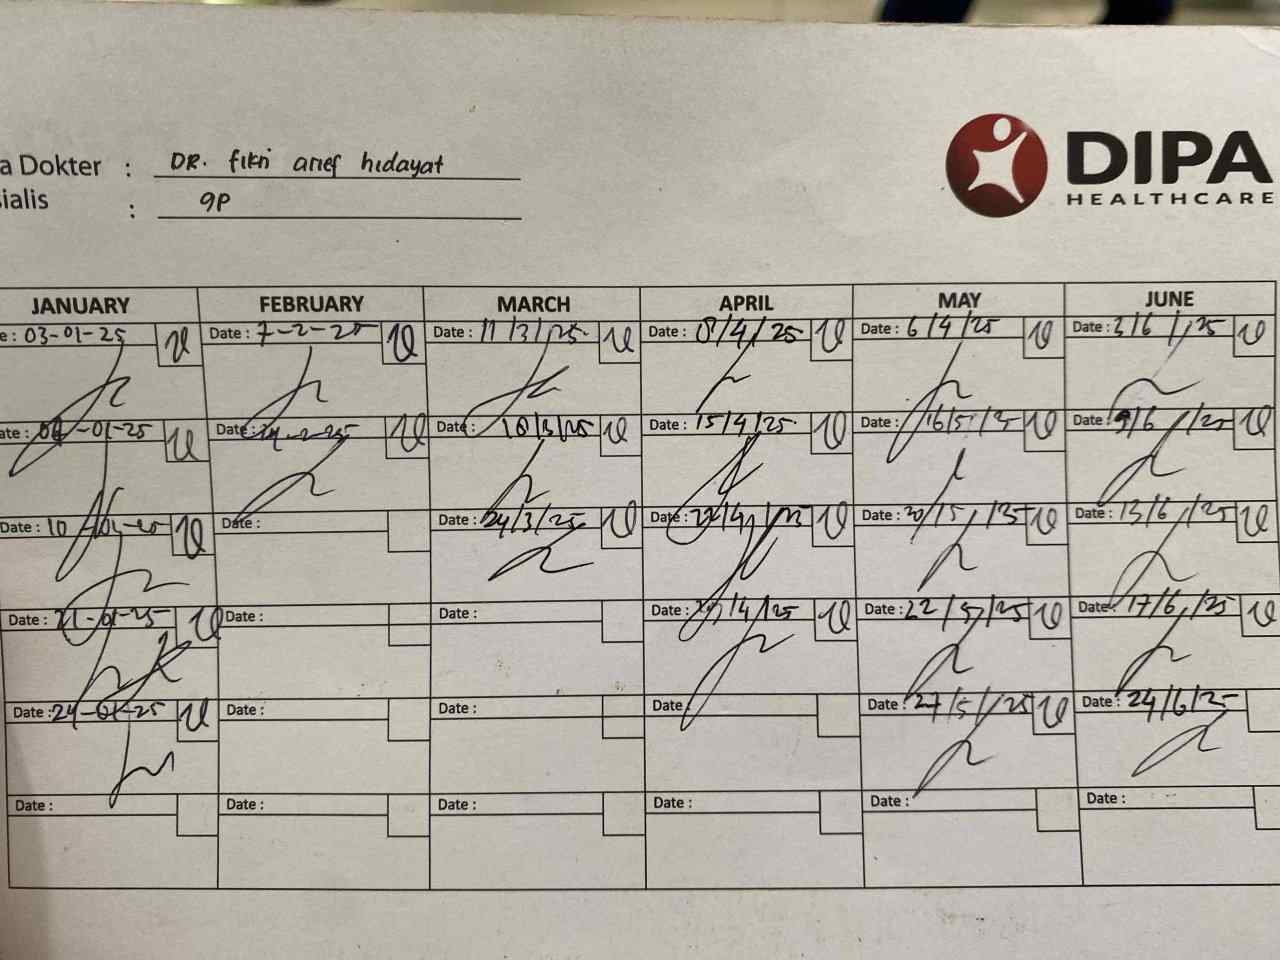 a Dokter : DR. fikri arief hidayat
ialis : GP
DIPA
HEALTHCARE
JANUARY FEBRUARY MARCH APRIL MAY JUNE
e : 03-01-25 Date : 7-2-25 Date : 11/3/25 Date : 8/4/25 Date : 6/4/25 Date : 3/6/25
ate : -01-25 Date : -2-25 Date : 18/3/25 Date : 15/4/25 Date : 16/5/25 Date : 9/6/25
Date : 10 Date : Date : 24/3/25 Date : 22/4/25 Date : 20/5/25 Date : 13/6/25
Date : 21-01-25 Date : Date : Date : /4/25 Date : 22/5/25 Date : 17/6/25
Date : 24-01-25 Date : Date : Date : Date : 27/5/25 Date : 24/6/25
Date : Date : Date : Date : Date : Date :